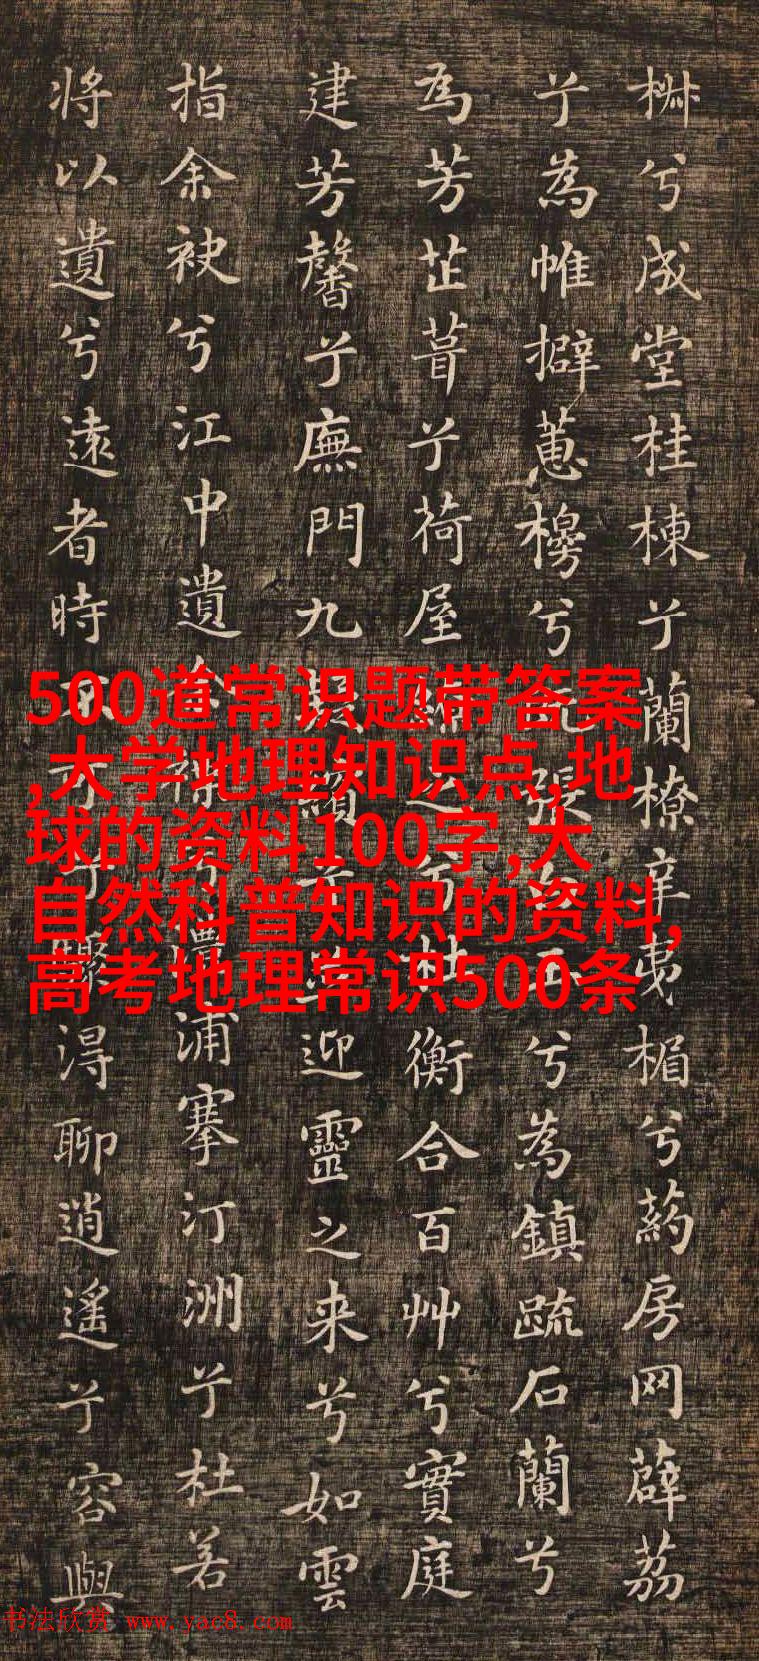 椒兮成堂桂棟兮蘭橑辛夷楣兮葯房网薜荔
兮為帷擗蕙櫋兮既張白玉兮為鎮疏石蘭兮
為芳芷葺兮荷屋繚之兮杜衡合百艸兮實庭
建芳馨兮廡門九嶷繽兮並迎靈之来兮如雲
指余袂兮江中遺余褋兮澧浦搴汀洲兮杜若
將以遺兮遠者時不可兮驟得聊逍遙兮容與
500道常识题带答案
,大学地理知识点,地
球的资料100字,大
自然科普知识的资料,
高考地理常识500条
书法欣赏 www.yac8.com